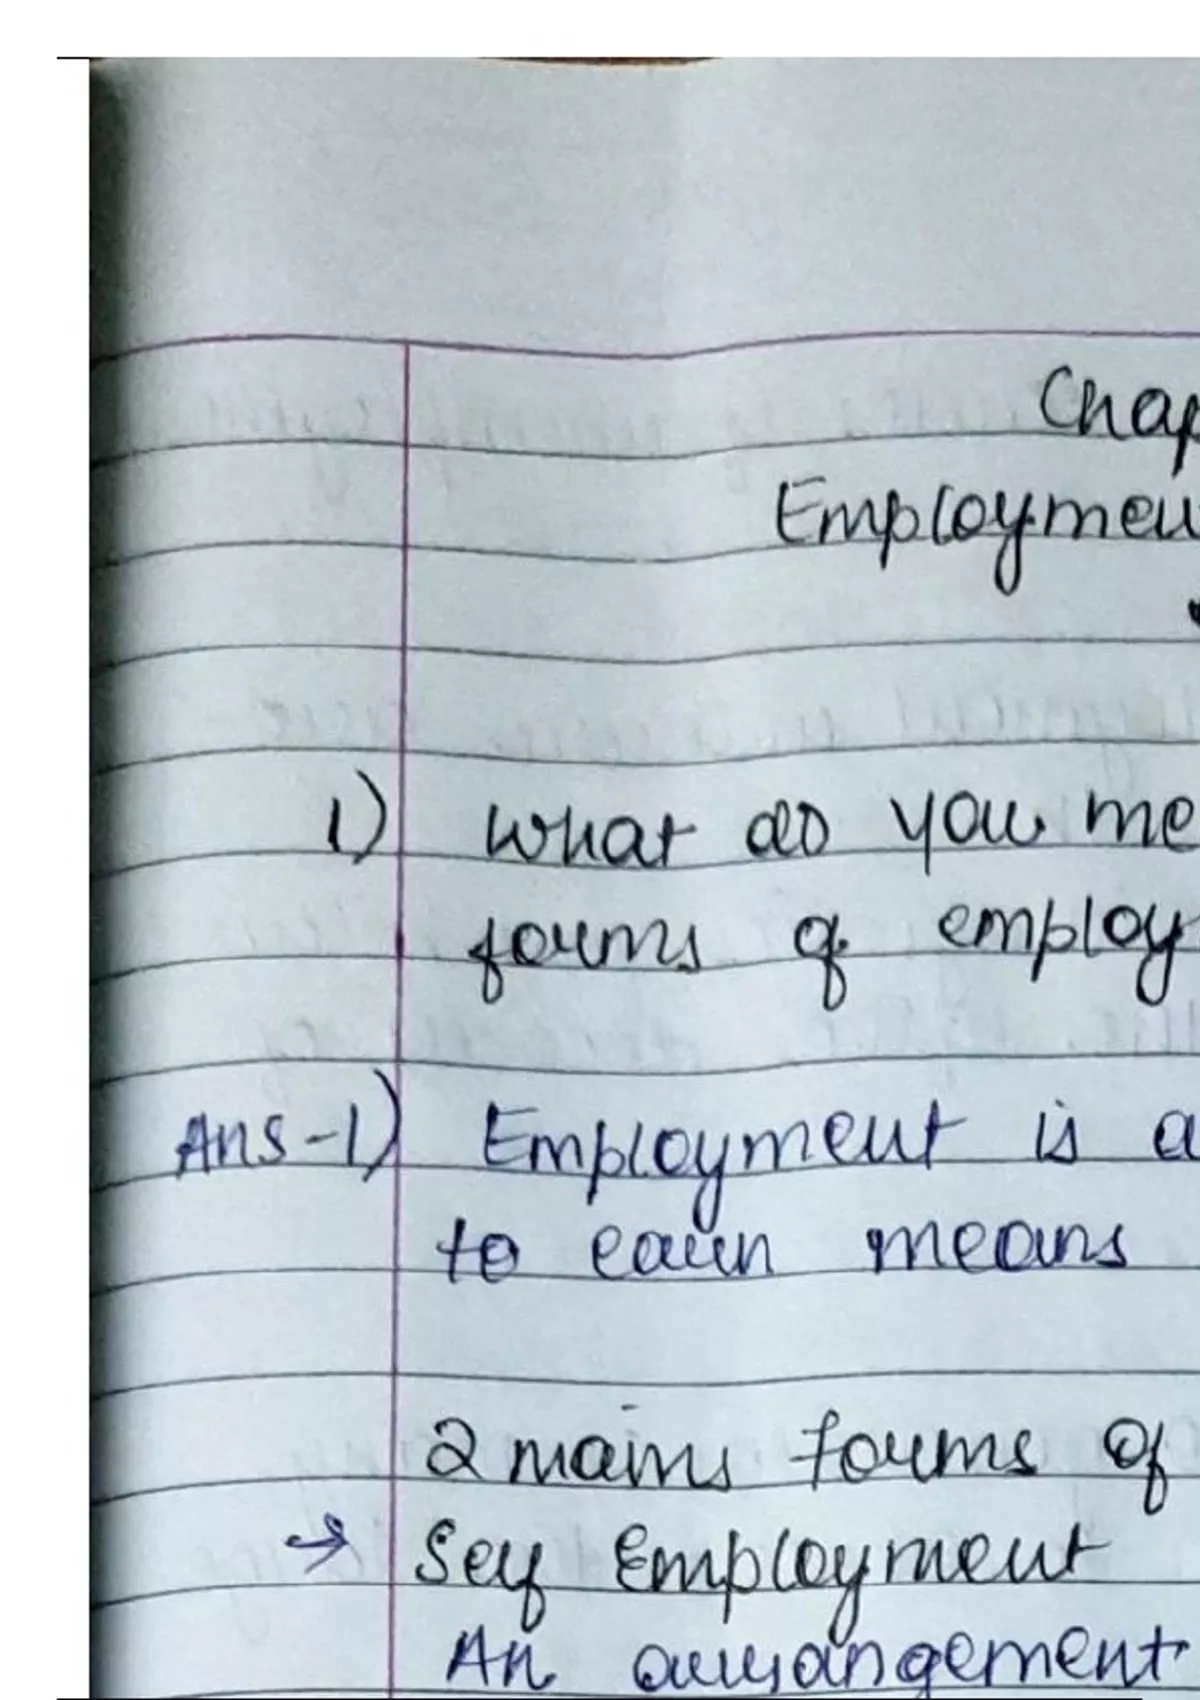 Chap
Employmen
1) What do you me
forms of employ
Ans-1) Employment is a
to earn means
2 mains forms of
→ Self Employment
An arrangement